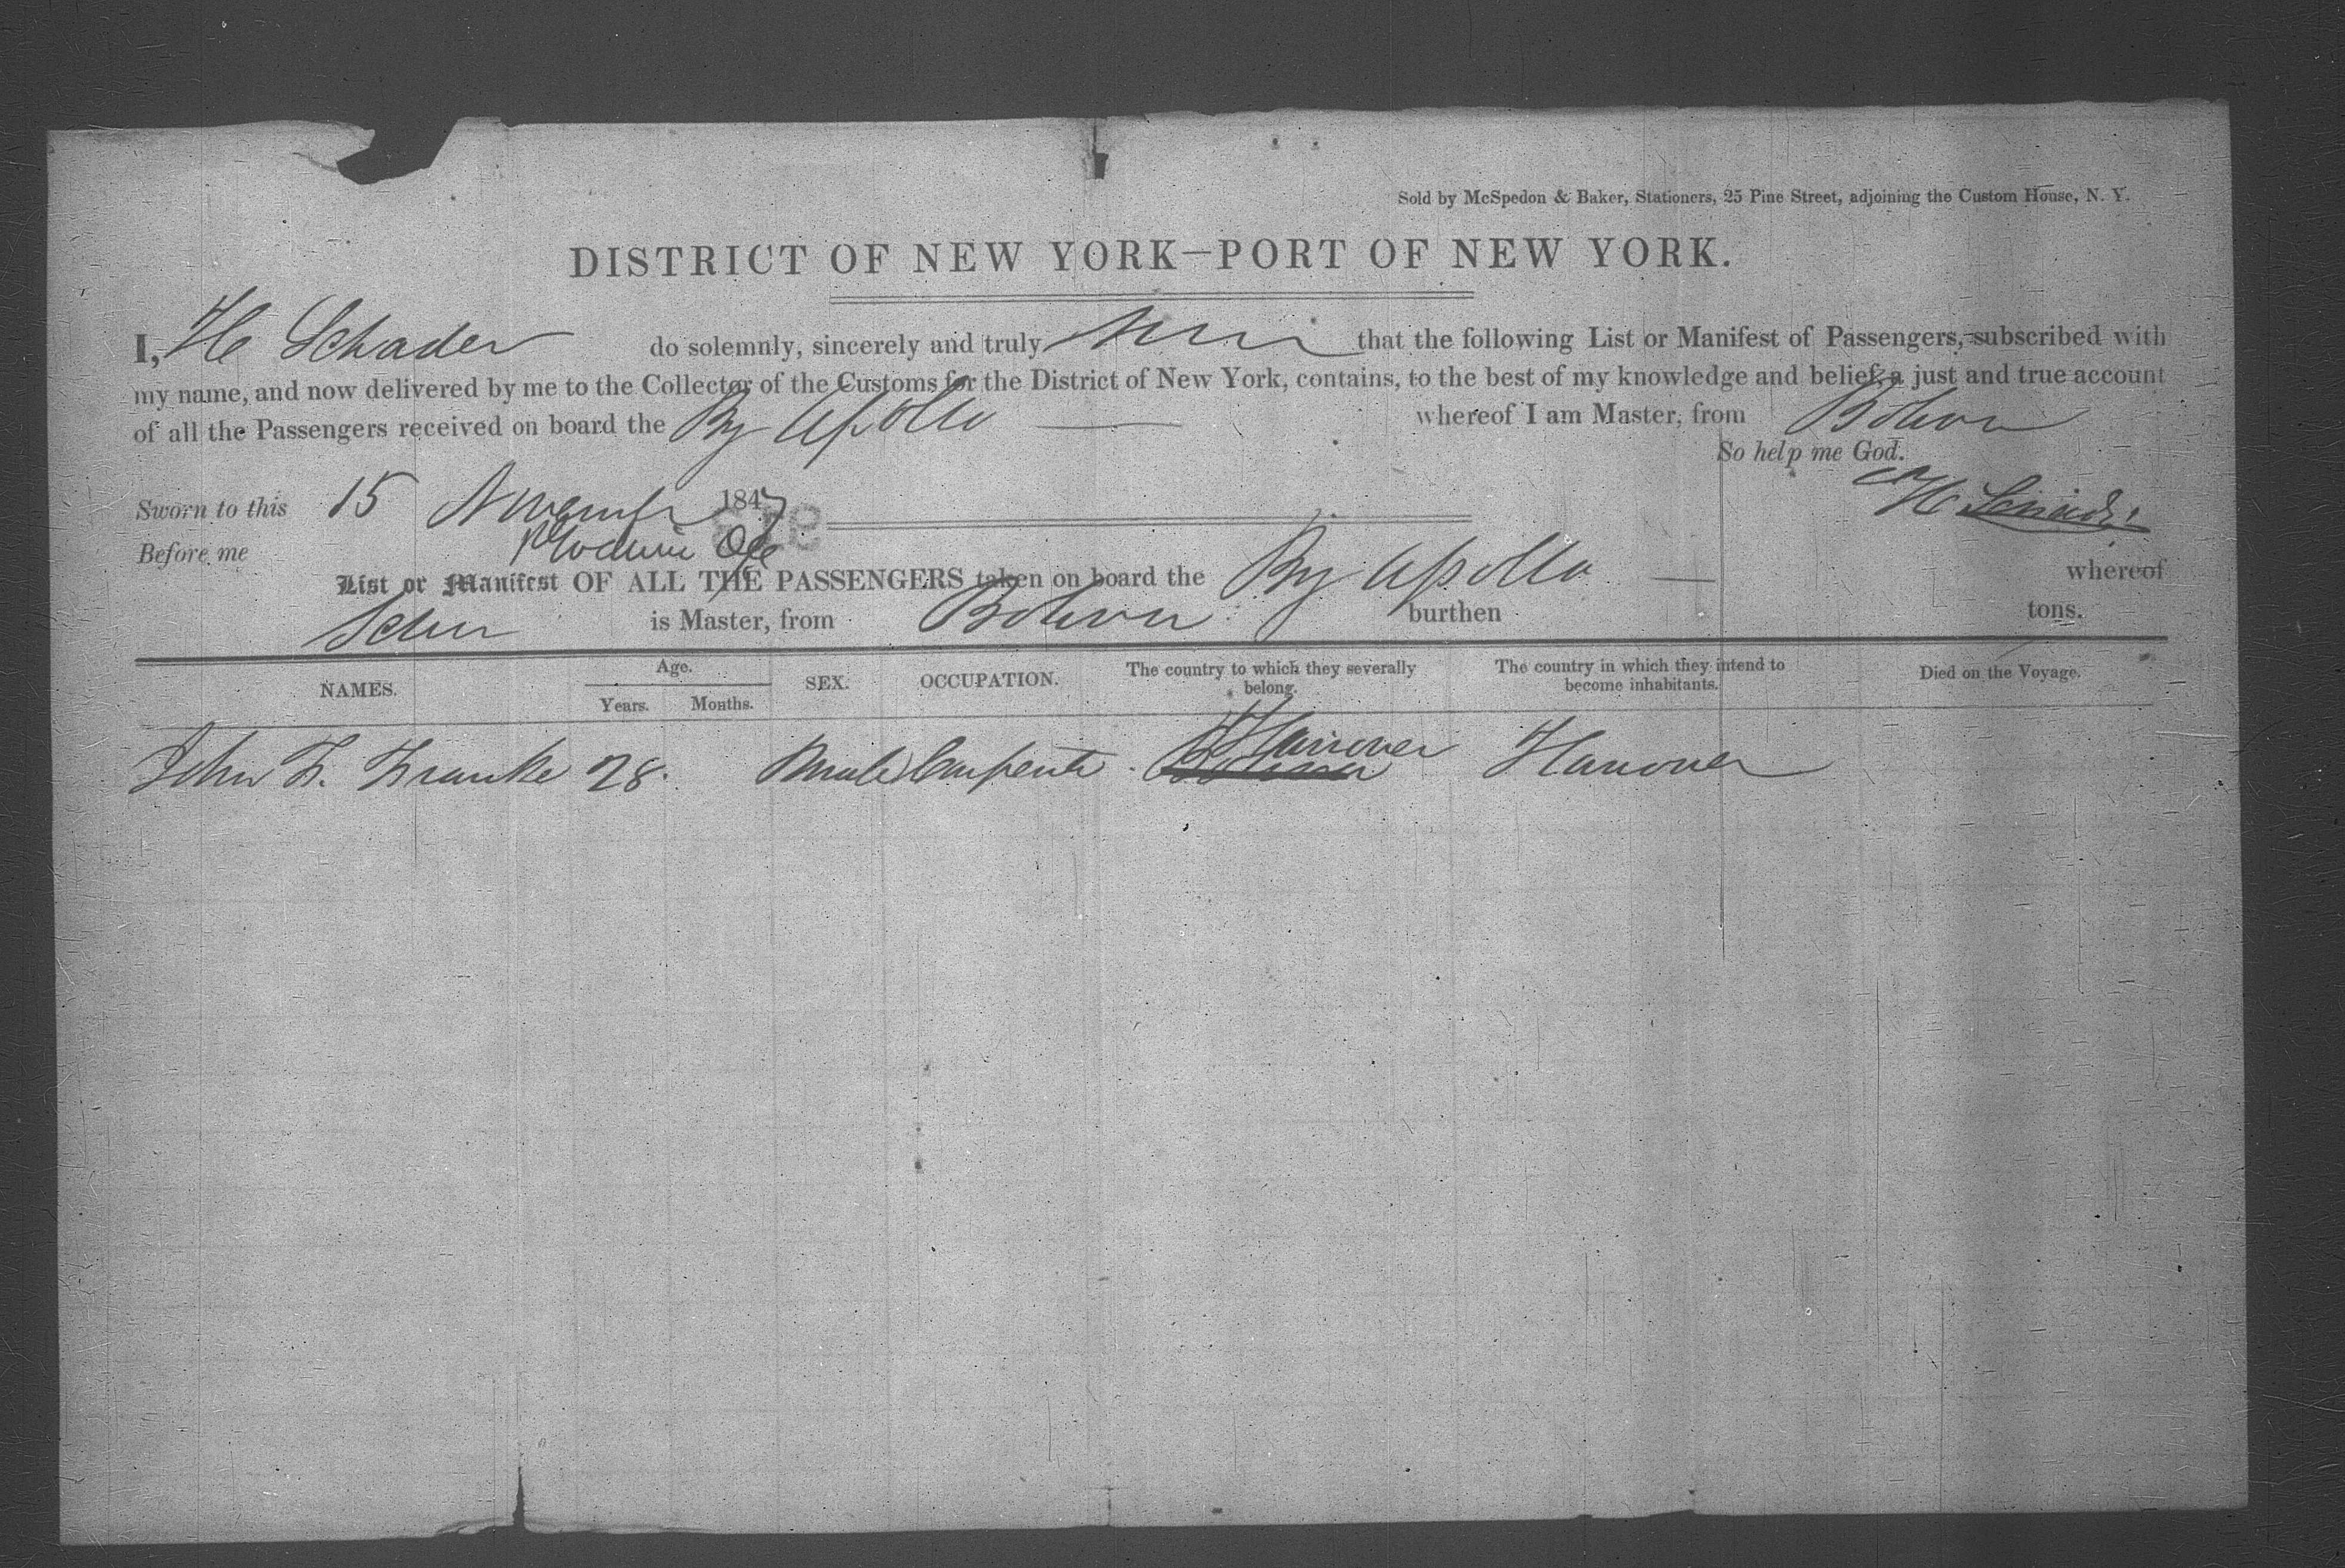 Sold by McSpedon & Baker, Stationers, 25 Pine Street, adjoining the Custom House, N. Y.
DISTRICT OF NEW YORK—PORT OF NEW YORK.
I, H Schader do solemnly, sincerely and truly that the following List or Manifest of Passengers, subscribed with
my name, and now delivered by me to the Collector of the Customs for the District of New York, contains, to the best of my knowledge and belief, a just and true account
of all the Passengers received on board the Bg Apollo whereof I am Master, from
So help me God.
Sworn to this 15 November 1847
Before me
List or Manifest OF ALL THE PASSENGERS taken on board the Bg Apollo whereof
is Master, from burthen tons.
NAMES. Age. Years. Months. SEX. OCCUPATION. The country to which they severally belong. The country in which they intend to become inhabitants. Died on the Voyage.
John F. Franke 28. Male Carpenter Hanover Hanover